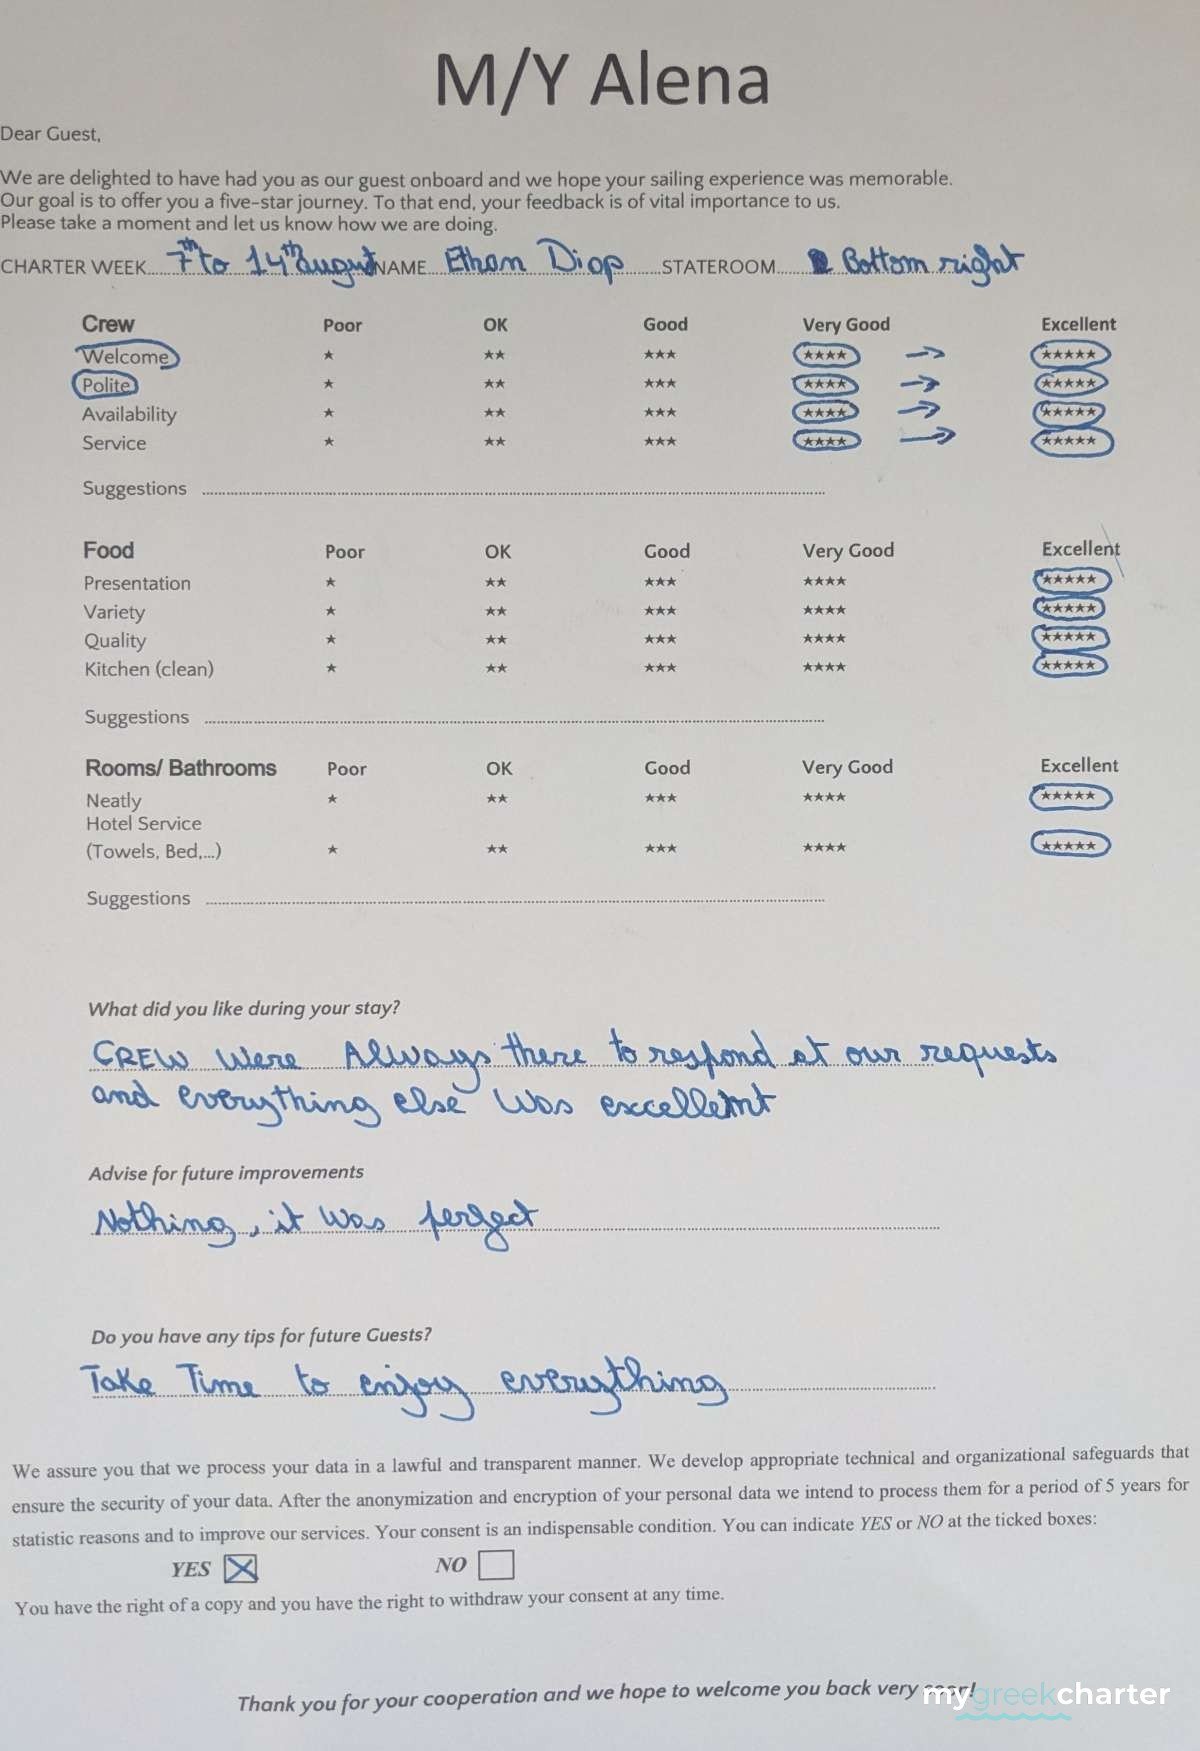 M/Y Alena
Dear Guest,
We are delighted to have had you as our guest onboard and we hope your sailing experience was memorable.
Our goal is to offer you a five-star journey. To that end, your feedback is of vital importance to us.
Please take a moment and let us know how we are doing.
CHARTER WEEK 7th to 14th august NAME Ethan Diop STATEROOM Bottom right
Crew Poor OK Good Very Good Excellent
Welcome ★ ★★ ★★★ ★★★★ → ★★★★★
Polite ★ ★★ ★★★ ★★★★ → ★★★★★
Availability ★ ★★ ★★★ ★★★★ → ★★★★★
Service ★ ★★ ★★★ ★★★★ → ★★★★★
Suggestions
Food Poor OK Good Very Good Excellent
Presentation ★ ★★ ★★★ ★★★★ ★★★★★
Variety ★ ★★ ★★★ ★★★★ ★★★★★
Quality ★ ★★ ★★★ ★★★★ ★★★★★
Kitchen (clean) ★ ★★ ★★★ ★★★★ ★★★★★
Suggestions
Rooms/ Bathrooms Poor OK Good Very Good Excellent
Neatly ★ ★★ ★★★ ★★★★ ★★★★★
Hotel Service
(Towels, Bed,...) ★ ★★ ★★★ ★★★★ ★★★★★
Suggestions
What did you like during your stay?
CREW Were Always there to respond at our requests
and everything else Was excellent
Advise for future improvements
Nothing, it Was perfect
Do you have any tips for future Guests?
Take Time to enjoy everything
We assure you that we process your data in a lawful and transparent manner. We develop appropriate technical and organizational safeguards that
ensure the security of your data. After the anonymization and encryption of your personal data we intend to process them for a period of 5 years for
statistic reasons and to improve our services. Your consent is an indispensable condition. You can indicate YES or NO at the ticked boxes:
YES ☒ NO ☐
You have the right of a copy and you have the right to withdraw your consent at any time.
Thank you for your cooperation and we hope to welcome you back very
mygreekcharter